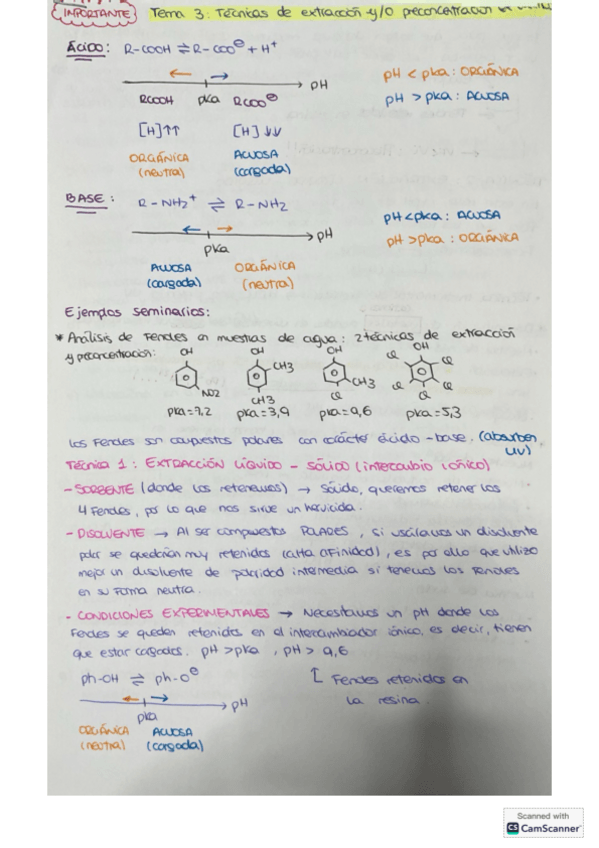 IMPORTANTE Tema 3: Técnicas de extracción y/o preconcentración
ÁCIDO: R-COOH ⇌ R-COO⊖ + H+
pH
RCOOH pKa RCOO⊖
pH < pKa: ORGÁNICA
pH > pKa: ACUOSA
[H]↑↑ [H]↓↓
ORGÁNICA (neutra)
ACUOSA (cargada)
BASE: R-NH2+ ⇌ R-NH2
pH
pKa
pH<pKa: ACUOSA
pH>pKa: ORGÁNICA
ACUOSA (cargada)
ORGÁNICA (neutra)
Ejemplos seminarios:
* Análisis de Fenoles en muestras de agua: 2 técnicas de extracción
y preconcentración:
OH OH OH OH
NO2 CH3 CH3 CH3 Cl Cl Cl Cl Cl Cl
pKa=7,2 pKa=3,9 pKa=9,6 pKa=5,3
Los Fenoles son compuestos polares con carácter ácido-base. (absorben UV)
Técnica 1: EXTRACCIÓN LÍQUIDO - SÓLIDO (intercambio iónico)
- SORBENTE (donde los retenemos) → Sólido, queremos retener los
4 Fenoles, por lo que nos sirve un
- DISOLVENTE → Al ser compuestos POLARES, si usáramos un disolvente
polar se quedarían muy retenidos (alta afinidad), es por ello que utilizo
mejor un disolvente de polaridad intermedia si tenemos los Fenoles
en su forma neutra.
- CONDICIONES EXPERIMENTALES → Necesitamos un pH donde los
Fenoles se queden retenidos en el intercambiador iónico, es decir, tienen
que estar cargados. pH>pKa, pH > 9,6
ph-OH ⇌ ph-O⊖
Fenoles retenidos en
la resina.
pH
pKa
ORGÁNICA (neutra)
ACUOSA (cargada)
Scanned with
CS CamScanner